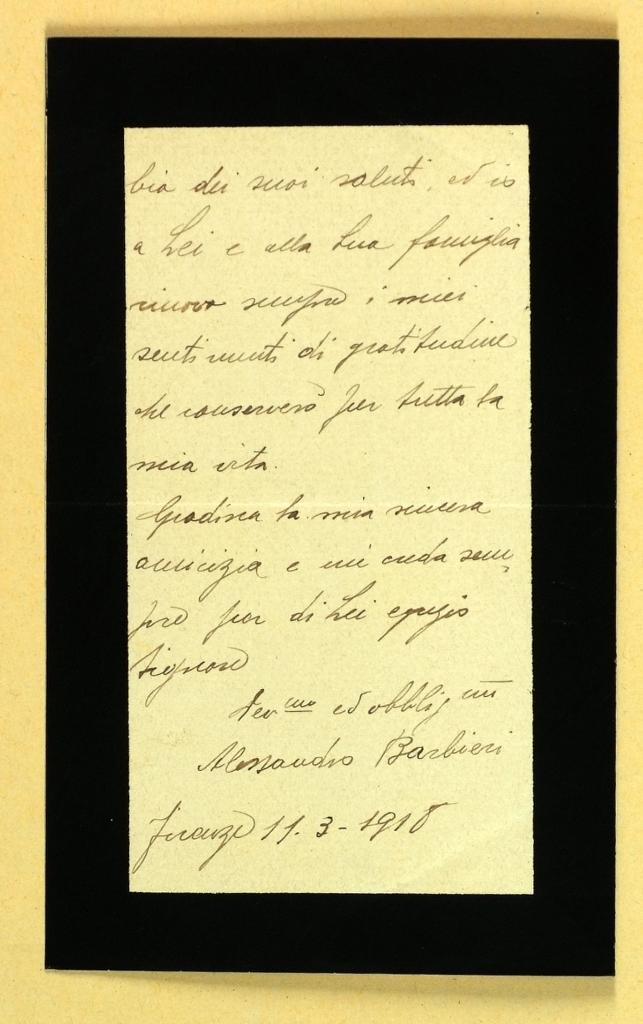 bia dei suoi saluti, ed io
a Lei e alla Sua famiglia
rinnovo sempre i miei
sentimenti di gratitudine
che conserverò per tutta la
mia vita.
Gradisca la mia sincera
amicizia e mi creda sem-
pre per di Lei egregio
Signore
Dev.mo ed obblig.mo
Alessandro Barbieri
Firenze 11-3-1918